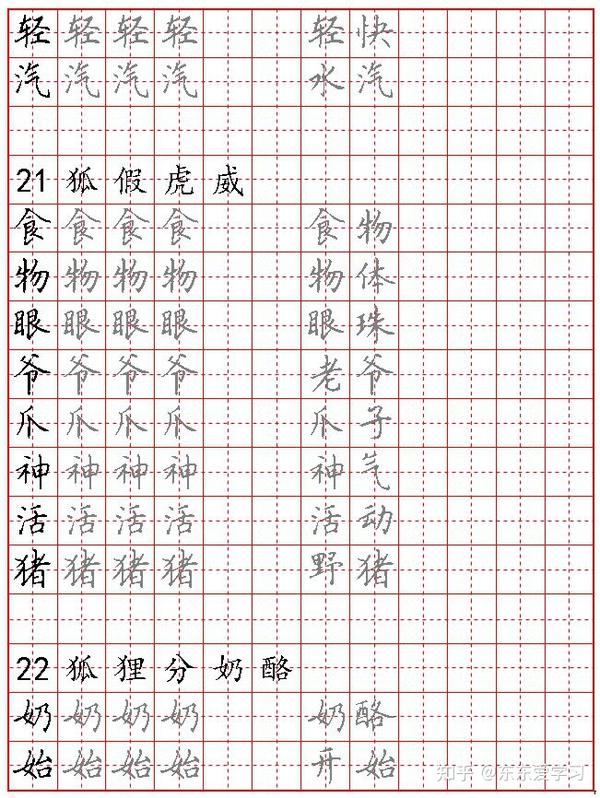 轻轻轻轻 轻快
汽汽汽汽 水汽
21 狐假虎威
食食食食 食物
物物物物 物体
眼眼眼眼 眼珠
爷爷爷爷 老爷
爪爪爪爪 爪子
神神神神 神气
活活活活 活动
猪猪猪猪 野猪
22 狐狸分奶酪
奶奶奶奶 奶酪
始始始始 开始
知乎 @东东爱学习